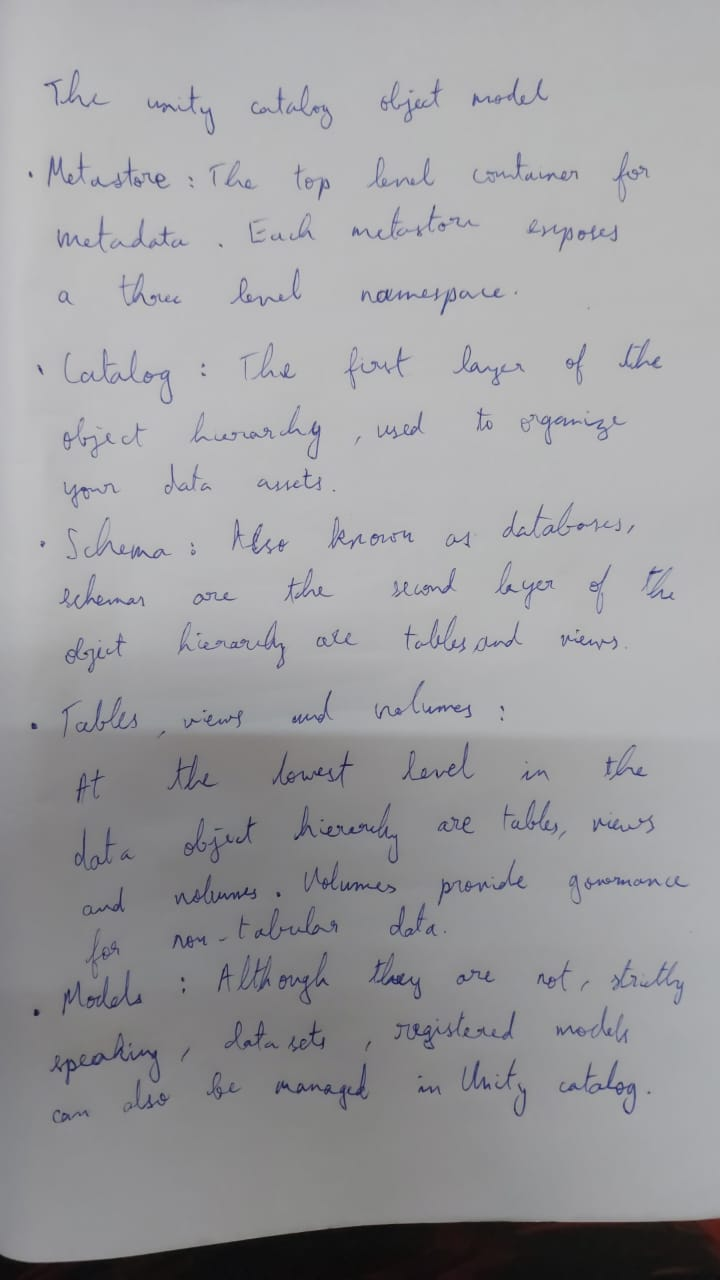 The unity catalog object model
• Metastore : The top level container for
metadata . Each metastore exposes
a three level namespace.
• Catalog : The first layer of the
object hierarchy , used to organize
your data assets.
• Schema : Also known as databases,
schemas are the second layer of the
object hierarchy are tables and views.
• Tables , views and volumes :
At the lowest level in the
data object hierarchy are tables, views
and volumes. Volumes provide governance
for non-tabular data.
• Models : Although they are not, strictly
speaking, data sets , registered models
can also be managed in Unity catalog.